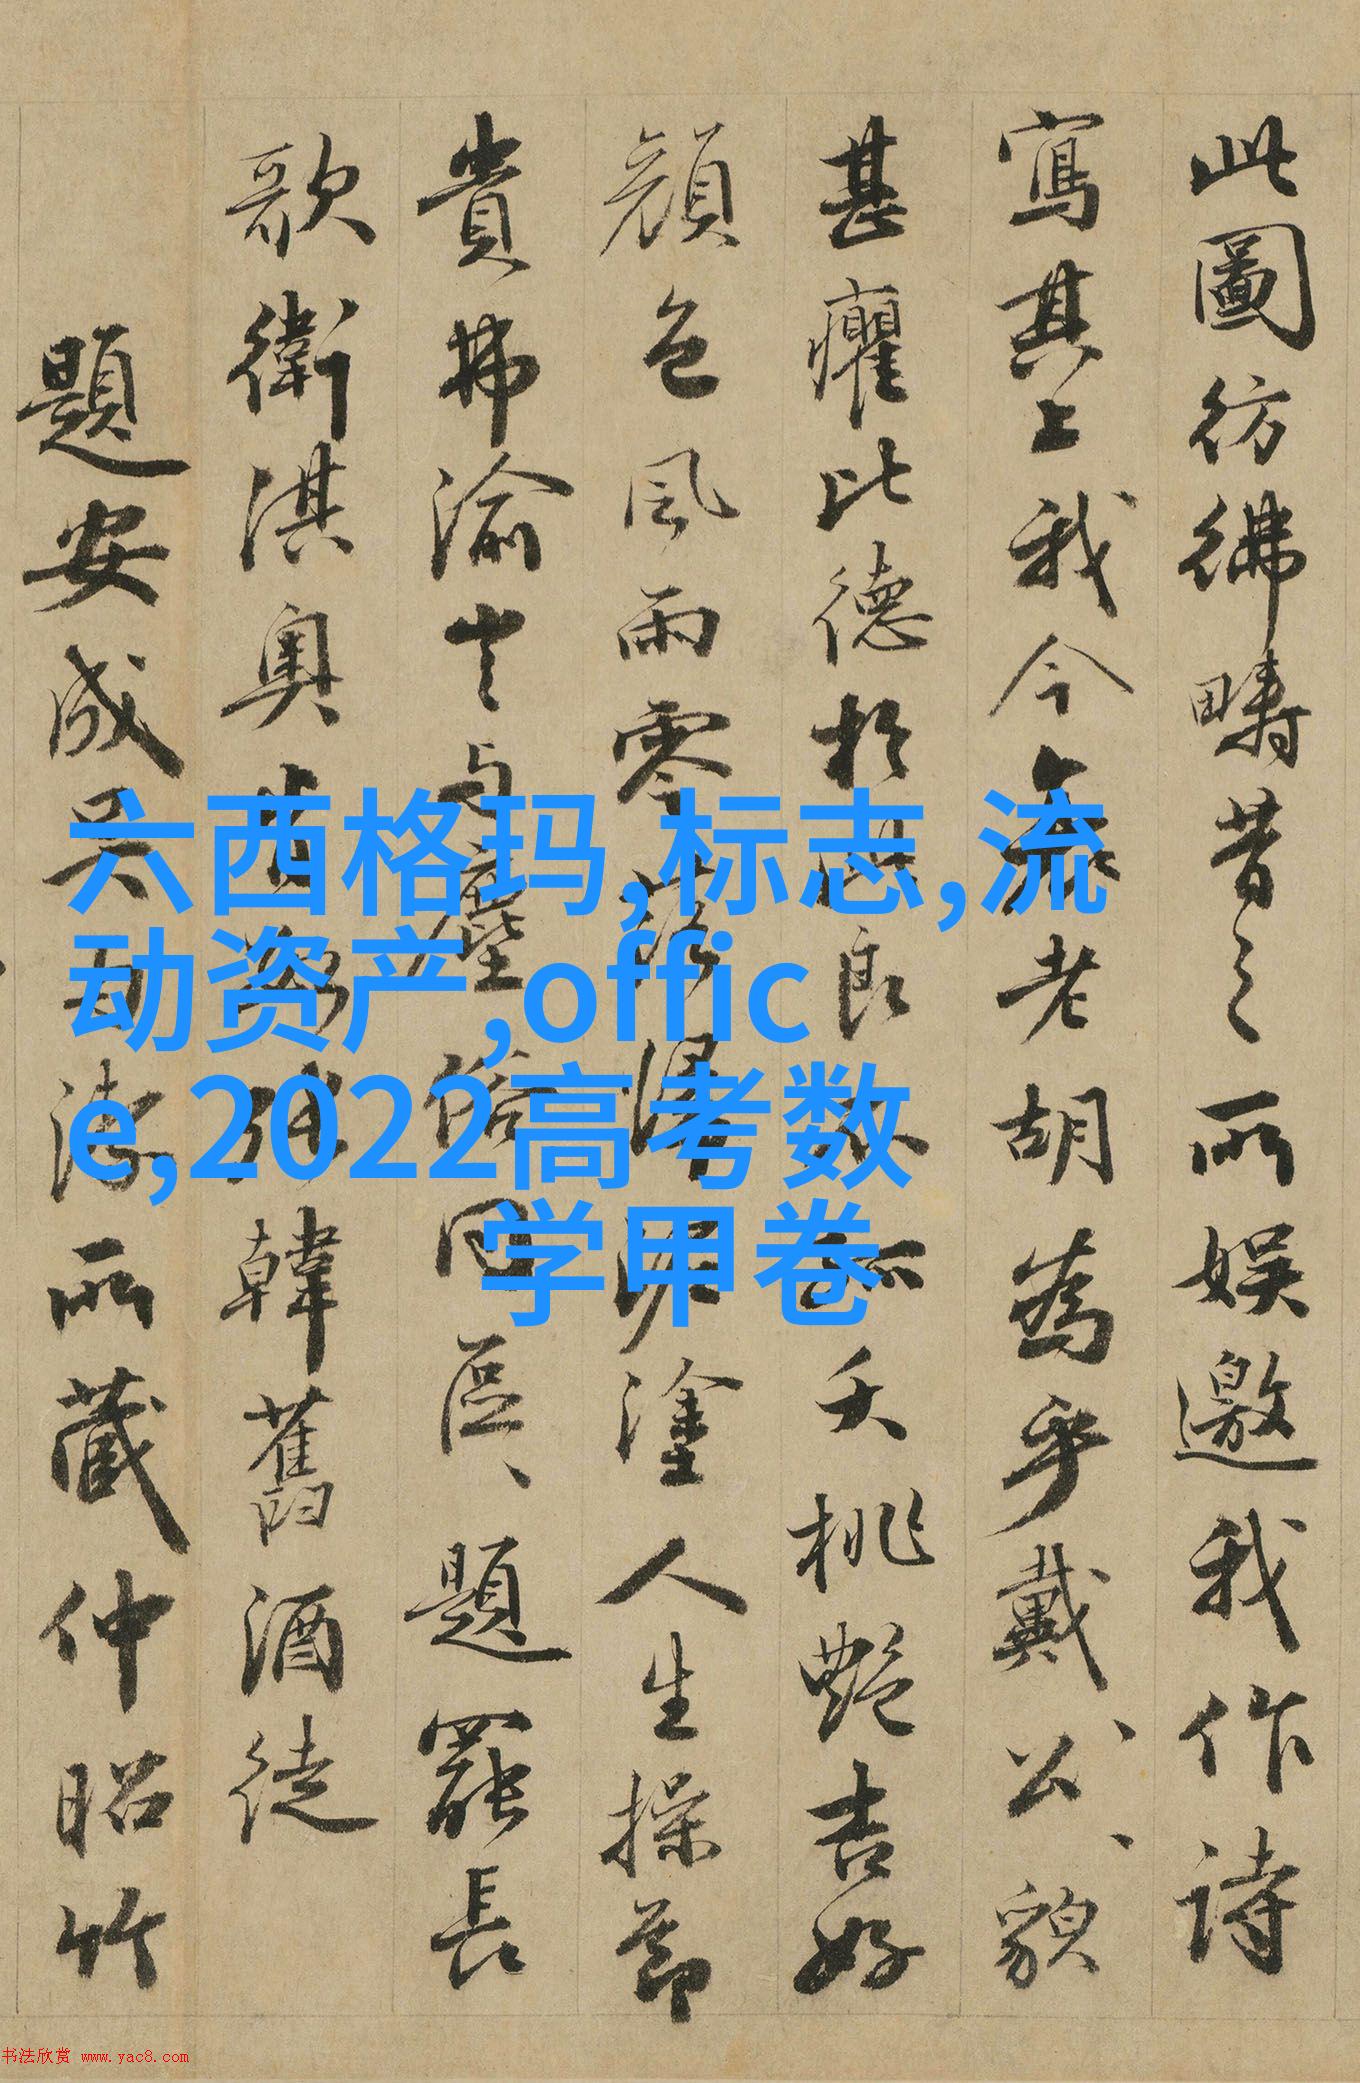 此圖彷彿疇昔之所娛邀我作詩
寫其上我今無老胡為乎戴公公貌
甚癯比德於良夭桃艷吉好
顏色風雨零落溷塗人生操節
貴弗渝与塵俗同區區題罷長
歌衛淇奧韓舊酒徒
題安成吳所藏仲昭竹
六西格玛,标志,流
动资产,offic
e,2022高考数
学甲卷
书法欣赏 www.yac8.com